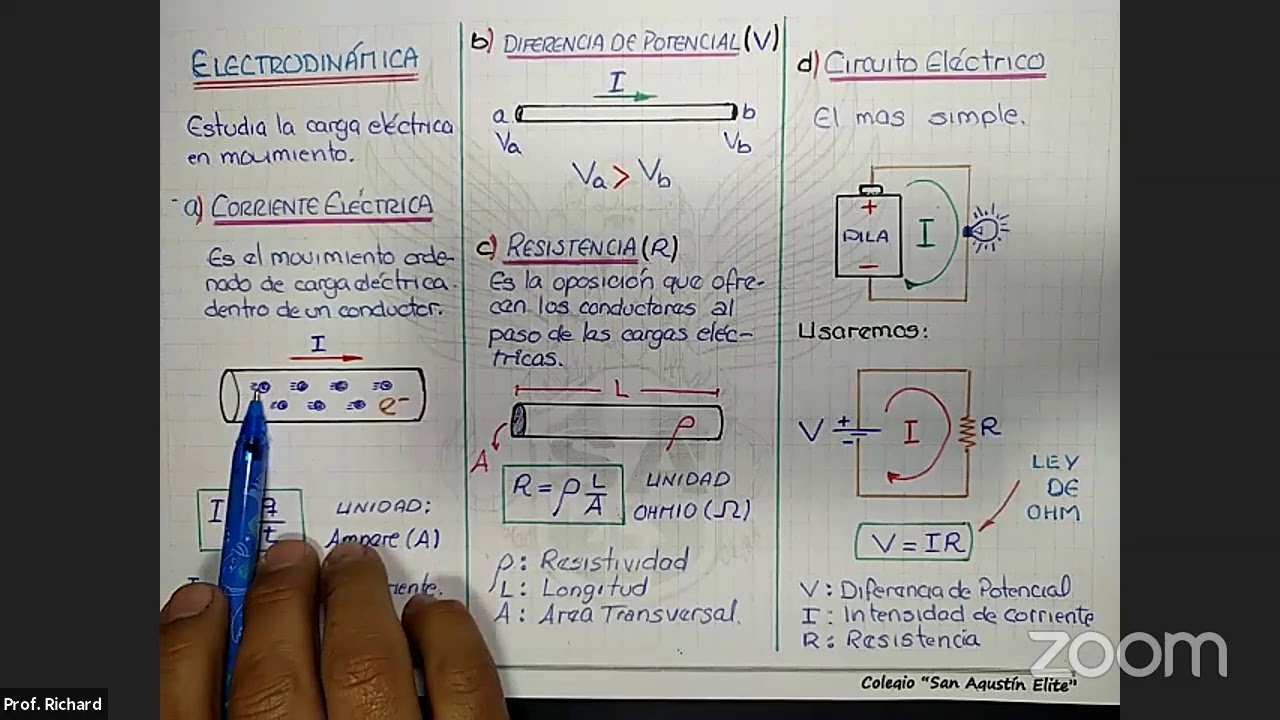 ELECTRODINÁMICA
Estudia la carga eléctrica
en movimiento.
a) CORRIENTE ELÉCTRICA
Es el movimiento orde-
nado de carga eléctrica
dentro de un conductor.
I
e-
I
t
UNIDAD:
Ampere (A)
b) DIFERENCIA DE POTENCIAL (V)
I
a b
Va Vb
Va > Vb
c) RESISTENCIA (R)
Es la oposición que ofre-
cen los conductores al
paso de las cargas eléc-
tricas.
L
ρ
A
R = ρ L/A
UNIDAD
OHMIO (Ω)
ρ: Resistividad
L: Longitud
A: Area Transversal.
d) Circuito Eléctrico
El mas simple.
+
PILA
-
I
Usaremos:
V + - I R
LEY
DE
OHM
V = IR
V: Diferencia de Potencial
I: Intensidad de corriente
R: Resistencia
zoom
Colegio "San Agustín Elite"
Prof. Richard